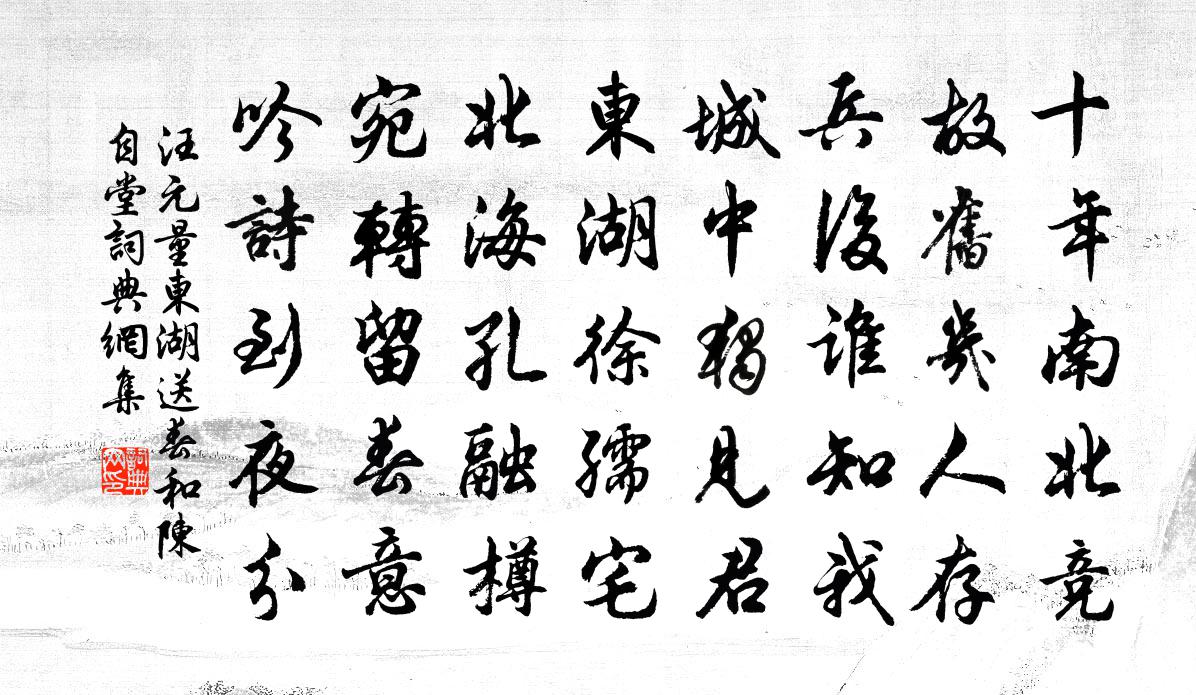 十年南北竞
故舊幾人存
兵後誰知我
城中獨見君
東湖徐孺宅
北海孔融樽
宛轉留春意
吟詩到夜分
汪元量東湖送春和陳
自堂詞典網集
詞典
网印